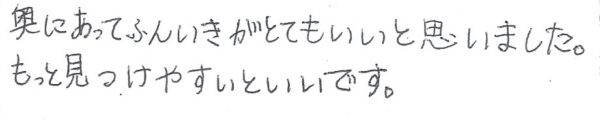 奥にあってふんいきがとてもいいと思いました。
もっと見つけやすいといいです。